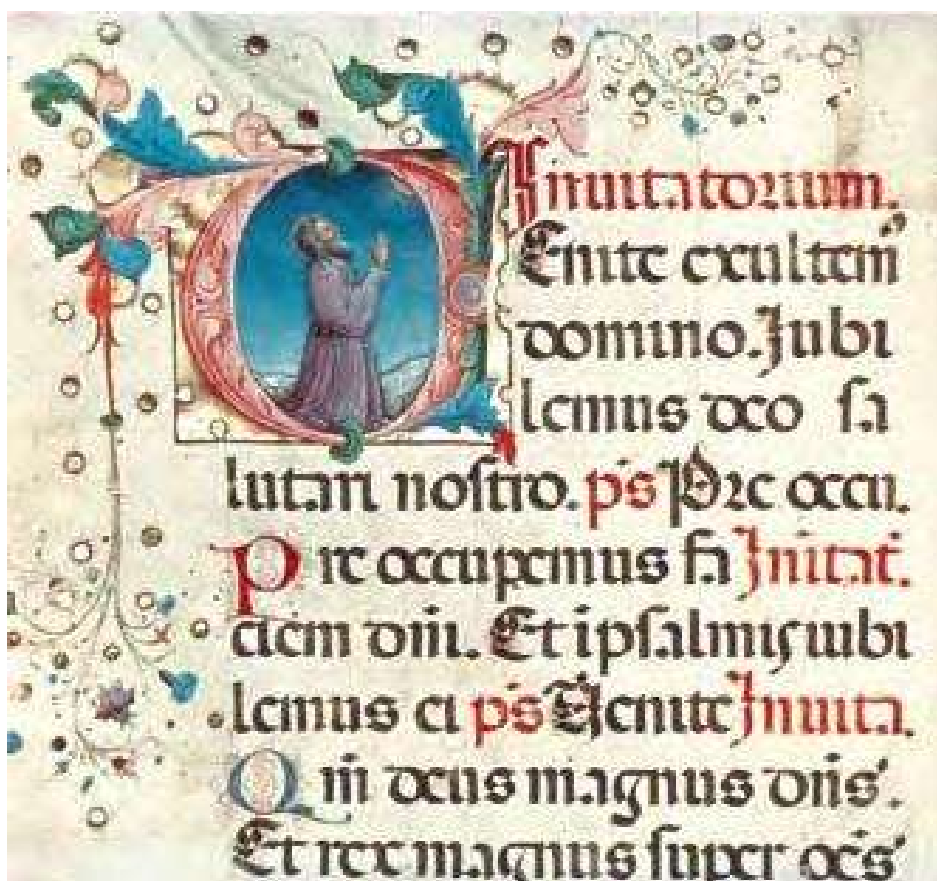 Inuitatorium.
Enite exultem̄
domino. Jubi
lemus deo sa
lutari nostro. ps Pre occu.
Pre occupemus fa Initat.
ciem dn̄i. Et ipsalmis iubi
lemus ei ps Uenite Inuita.
Qm̄ deus magnus dn̄s.
Et rex magnus super oēs